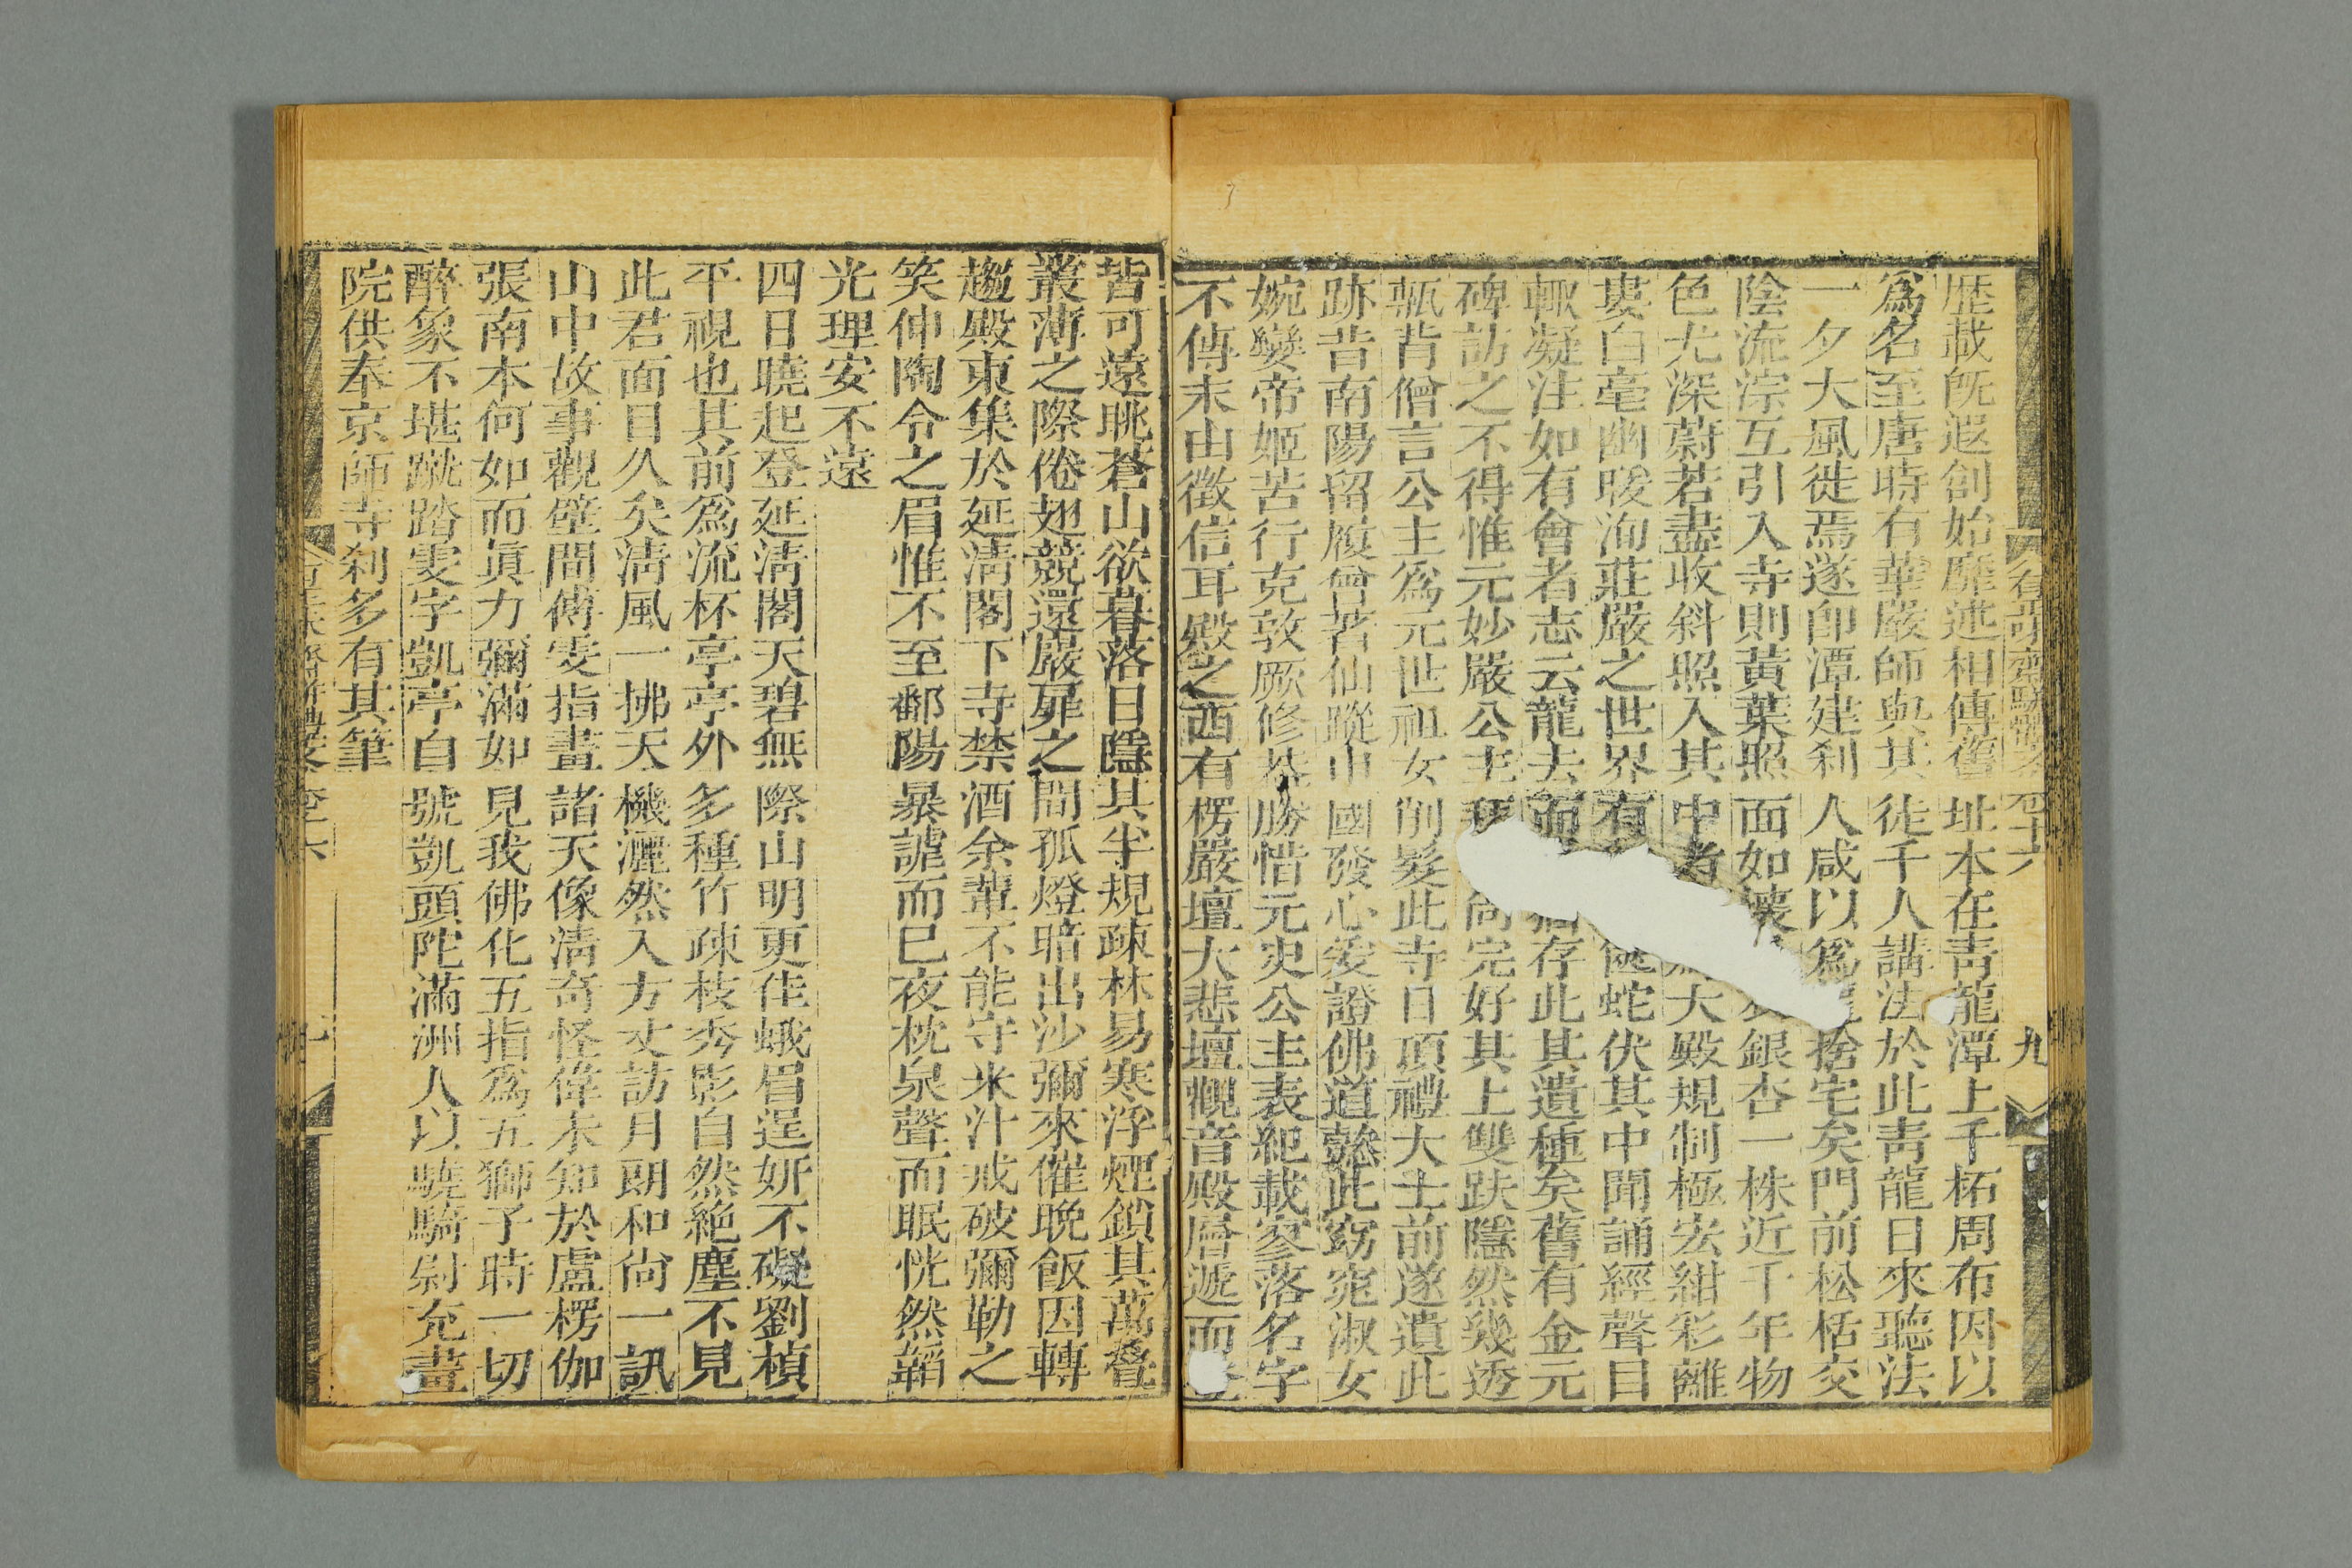 歴載旣遐創始靡述相傳舊址本在靑龍潭上千柘周布因以
爲名至唐時有華嚴師與其徒千人講法於此靑龍日來聽法
一夕大風徙焉遂卽潭建刹人咸以爲捨宅矣門前松栝交
陰流淙互引入寺則黃葉照面如懷銀杏一株近千年物
色尤深蔚若盡收斜照入其中者大殿規制極宏紺彩離
婁白毫幽暖洵莊嚴之世界有蛇伏其中聞誦經聲目
輒凝注如有會者志云龍去而猶存此其遺種矣舊有金元
碑訪之不得惟元妙嚴公主尙完好其上雙趺隱然幾透
甎背僧言公主爲元世祖女削髮此寺日頂禮大士前遂遺此
跡昔南陽留履曾著仙蹤中國發心爰證佛道懿此窈窕淑女
婉孌帝姬苦行克敦厥修基勝惜元史公主表紀載寥落名字
不傳末由徵信耳殿之西有楞嚴壇大悲壇觀音殿層遞而
皆可遠眺蒼山欲暮落日隱其半規疎林易寒浮煙鎖其萬疊
叢薄之際倦翅競還嚴扉之間孤燈暗出沙彌來催晚飯因轉
趨殿東集於延淸閣下寺禁酒余輩不能守米汁戒破彌勒之
笑仲陶令之眉惟不至鄱陽暴謔而已夜枕泉聲而眠恍然韜
光理安不遠
四日曉起登延淸閣天碧無際山明更佳蛾眉逞妍不礙劉楨
平視也其前爲流杯亭亭外多種竹疎枝秀影自然絶塵不見
此君面目久矣淸風一拂天機灑然入方丈訪月朗和尙一訊
山中故事觀壁間傅雯指畫諸天像淸奇怪偉未知於盧楞伽
張南本何如而眞力彌滿如見我佛化五指爲五獅子時一切
醉象不堪蹴踏雯字凱亭自號凱頭陀滿洲人以驍騎尉充畫
院供奉京師寺刹多有其筆
九